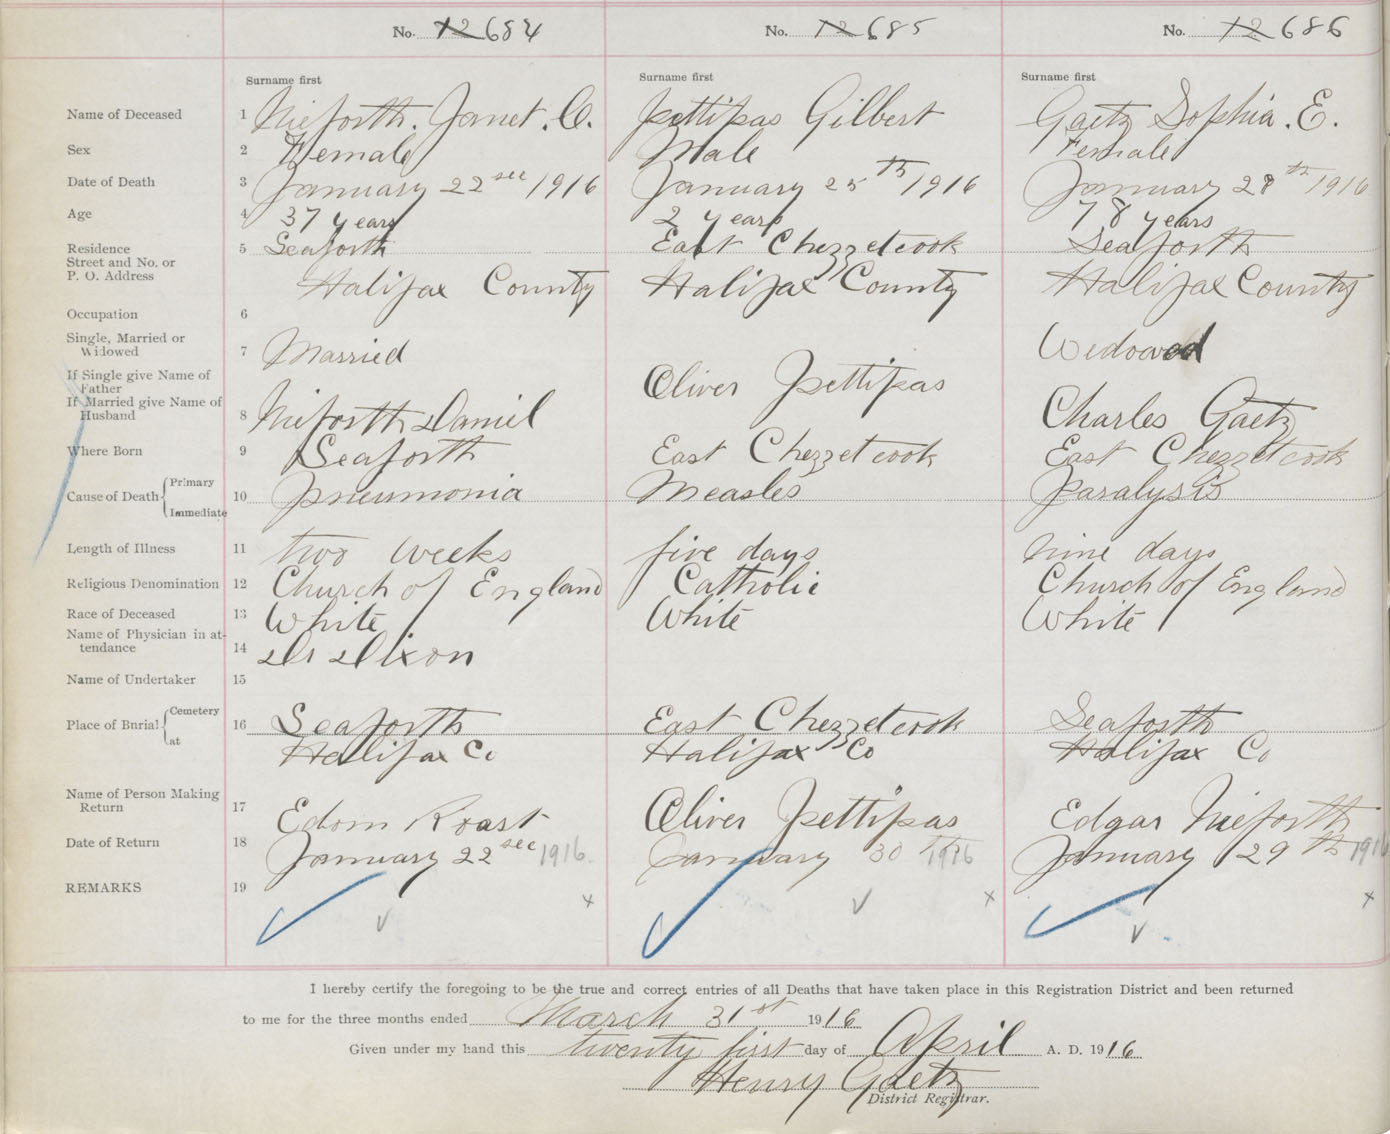 No. 12684 No. 12685 No. 12686
Surname first Surname first Surname first
Name of Deceased 1 Nieforth. Janet. O. Pettipas Gilbert Gaetz Sophia. E.
Sex 2 Female Male Female
Date of Death 3 January 22 sec 1916 January 25th 1916 January 28th 1916
Age 4 37 years 2 years 78 years
Residence 5 Seaforth East Chezzetcook Seaforth
Street and No. or
P. O. Address Halifax County Halifax County Halifax County
Occupation 6
Single, Married or
Widowed 7 Married Widowed
If Single give Name of
Father Oliver Pettipas
If Married give Name of
Husband 8 Nieforth Daniel Charles Gaetz
Where Born 9 Seaforth East Chezzetcook East Chezzetcook
Cause of Death Primary
10 Pneumonia Measles Paralysis
Immediate
Length of Illness 11 two weeks five days nine days
Religious Denomination 12 Church of England Catholic Church of England
Race of Deceased 13 White White White
Name of Physician in at-
tendance 14 Dr Dixon
Name of Undertaker 15
Place of Burial Cemetery 16 Seaforth East Chezzetcook Seaforth
at Halifax Co Halifax Co Halifax Co
Name of Person Making
Return 17 Edom Roast Oliver Pettipas Edgar Nieforth
Date of Return 18 January 22 sec 1916. January 30 th 1916 January 29th 1916
REMARKS 19
I hereby certify the foregoing to be the true and correct entries of all Deaths that have taken place in this Registration District and been returned
to me for the three months ended March 31st 1916
Given under my hand this twenty first day of April A. D. 1916
Henry Gaetz
District Registrar.